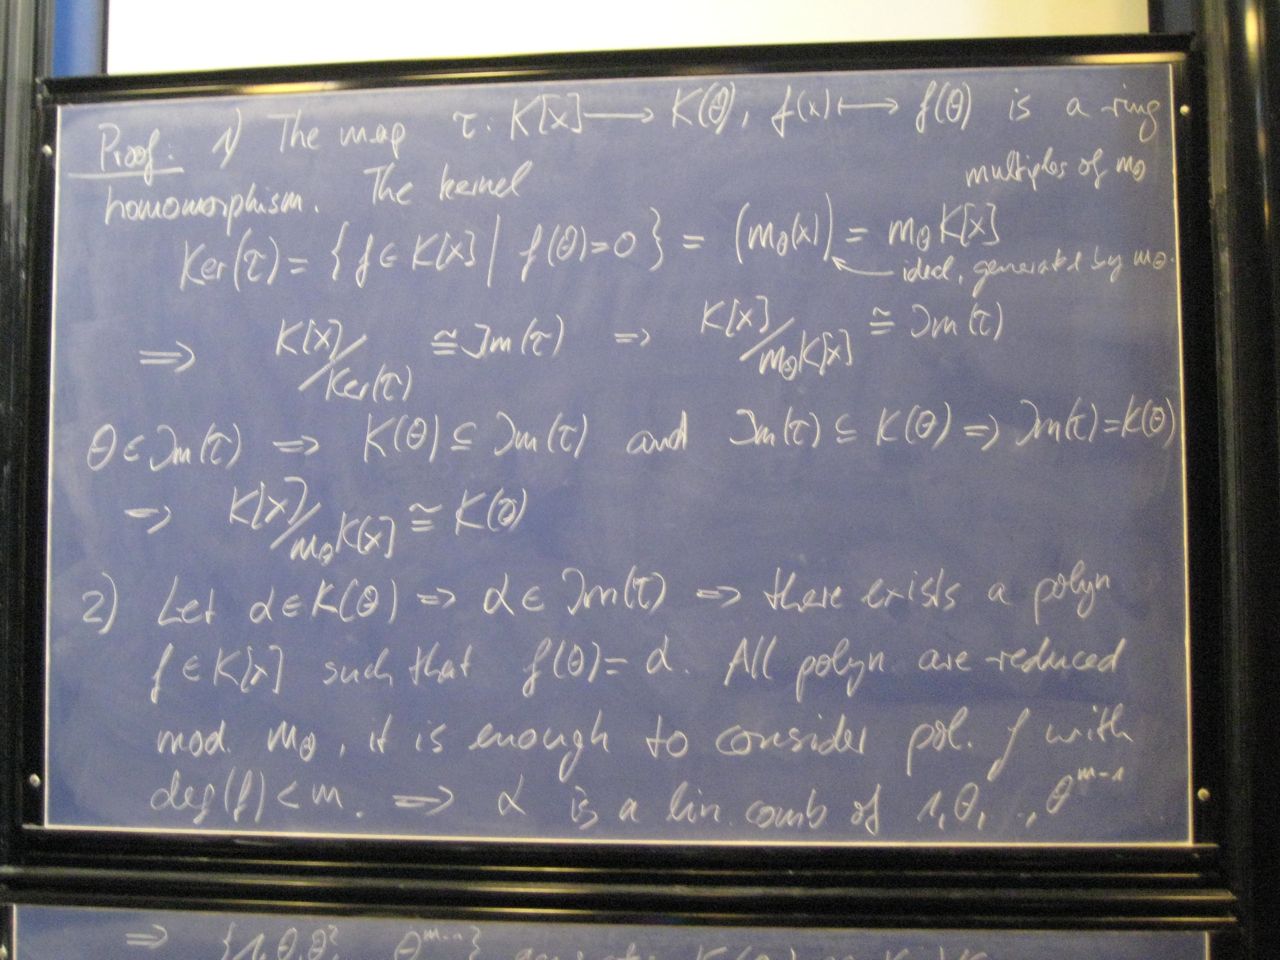 Proof: 1) The map τ: K[x] ⟶ K(θ), f(x) ⟼ f(θ) is a ring
homomorphism. The kernel
multiples of mθ
Ker(τ) = {f ∈ K[x] | f(θ)=0} = (mθ(x)) = mθ K[x]
ideal, generated by mθ.
⟹ K[x]/Ker(τ) ≅ Im(τ) ⟹ K[x]/mθK[x] ≅ Im(τ)
θ ∈ Im(τ) ⟹ K(θ) ⊆ Im(τ) and Im(τ) ⊆ K(θ) ⟹ Im(τ)=K(θ)
⟹ K[x]/mθK[x] ≅ K(θ)
2) Let α ∈ K(θ) ⟹ α ∈ Im(τ) ⟹ there exists a polyn
f ∈ K[x] such that f(θ) = α. All polyn are reduced
mod. mθ, it is enough to consider pol. f with
deg(f) < m. ⟹ α is a lin. comb of 1, θ, .., θ^{m-1}
⟹ {1, θ, θ², θ^{m-1}}